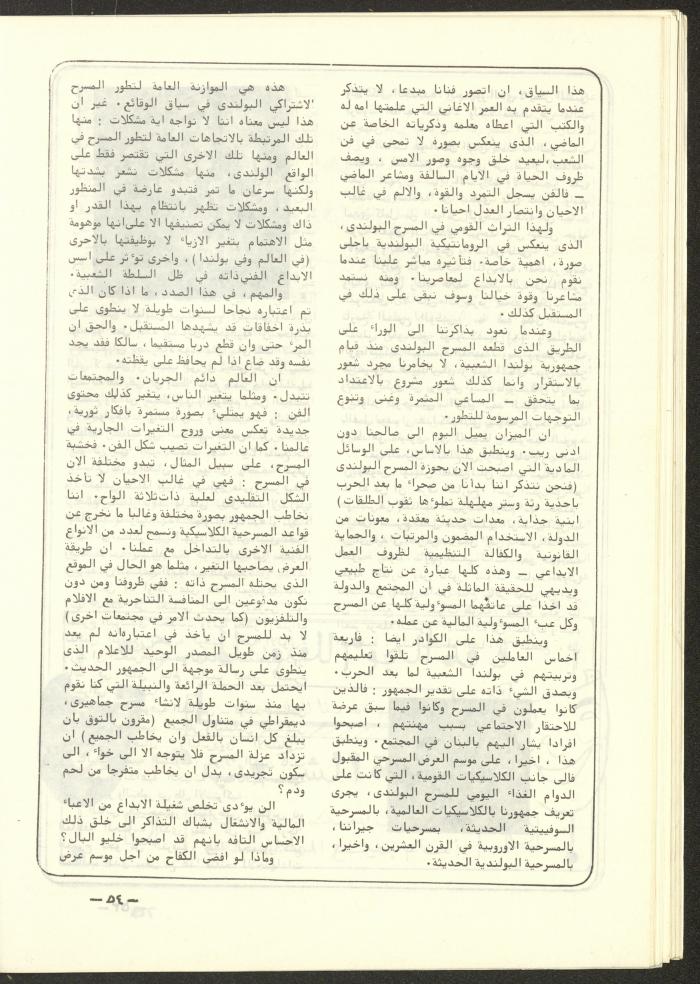 هذا السياق، ان اتصور فنانا مبدعا، لا يتذكر
عندما يتقدم به العمر الاغاني التي علمتها امه له
والكتب التي اعطاه معلمه وذكرياته الخاصة عن
الماضي، الذى ينعكس بصوره لا تمحى في فن
الشعب، ليعيد خلق وجوه وصور الامس ، ويصف
ظروف الحياة في الايام السالفة ومشاعر الماضي
ــ فالفن يسجل التمرد والقوة، والالم في غالب
الاحيان وانتصار العدل احيانا .
ولهذا التراث القومي في المسرح البولندى،
الذى ينعكس في الرومانتيكية البولندية باجلى
صورة، اهمية خاصة. فتأثيره مباشر علينا عندما
نقوم نحن بالابداع لمعاصرينا. ومنه نستمد
مشاعرنا وقوة خيالنا وسوف نبقى على ذلك في
المستقبل كذلك .
وعندما نعود بذاكرتنا الى الوراء على
الطريق الذى قطعه المسرح البولندى منذ قيام
جمهورية بولندا الشعبية، لا يخامرنا مجرد شعور
بالاستقرار وانما كذلك شعور مشروع بالاعتداد
بما يتحقق ــ المساعي المثمرة وغنى وتنوع
التوجهات المرسومة للتطور.
ان الميزان يميل اليوم الى صالحنا دون
ادنى ريب. وينطبق هذا بالاساس، على الوسائل
المادية التي اصبحت الان بحوزة المسرح البولندى
(فنحن نتذكر اننا بدأنا من صحراء ما بعد الحرب
باحذية رثة وستر مهلهلة تملوءها ثقوب الطلقات)
ابنية جذابة، معدات حديثة معقدة، معونات من
الدولة، الاستخدام المضمون والمرتبات ، والحماية
القانونية والكفالة التنظيمية لظروف العمل
الابداعي ــ وهذه كلها عبارة عن نتاج طبيعي
وبديهي للحقيقة الماثلة في ان المجتمع والدولة
قد اخذا على عاتقهما المسوءولية كلها عن المسرح
وكل عبء المسوءولية المالية عن عمله.
وينطبق هذا على الكوادر ايضا : فاربعة
اخماس العاملين في المسرح تلقوا تعليمهم
وتربيتهم في بولندا الشعبية لما بعد الحرب.
ويصدق الشيء ذاته على تقدير الجمهور : فالذين
كانوا يعملون في المسرح وكانوا فيما سبق عرضة
للاحتقار الاجتماعي بسبب مهنتهم ، اصبحوا
افرادا يشار اليهم بالبنان في المجتمع. وينطبق
هذا ، اخيرا، على موسم العرض المسرحي المقبول
فالى جانب الكلاسيكيات القومية، التي كانت على
الدوام الغذاء اليومي للمسرح البولندى، يجرى
تعريف جمهورنا بالكلاسيكيات العالمية، بالمسرحية
السوفييتية الحديثة، بمسرحيات جيراننا،
بالمسرحية الاوروبية في القرن العشرين، واخيرا،
بالمسرحية البولندية الحديثة.
هذه هي الموازنة العامة لتطور المسرح
الاشتراكي البولندى في سياق الوقائع. غير ان
هذا ليس معناه اننا لا نواجه اية مشكلات : منها
تلك المرتبطة بالاتجاهات العامة لتطور المسرح في
العالم ومنها تلك الاخرى التي تقتصر فقط على
الواقع الولندى، منها مشكلات نشعر بشدتها
ولكنها سرعان ما تمر فتبدو عارضة في المنظور
البعيد، ومشكلات تظهر بانتظام بهذا القدر او
ذاك ومشكلات لا يمكن تصنيفها الا على انها موهومة
مثل الاهتمام بتغير الازياء لا بوظيفتها بالاحرى
(في العالم وفي بولندا)، واخرى توءثر على اسس
الابداع الفني ذاته في ظل السلطة الشعبية.
والمهم، في هذا الصدد، ما اذا كان الذى
تم اعتباره نجاحا لسنوات طويلة لا ينطوى على
بذرة اخفاقات قد يشهدها المستقبل. والحق ان
المرء حتى وان قطع دربا مستقيما، سالكا فقد يجد
نفسه وقد ضاع اذا لم يحافظ على يقظته.
ان العالم دائم الجريان. والمجتمعات
تتبدل. ومثلما يتغير الناس، يتغير كذلك محتوى
الفن : فهو يمتلىء بصورة مستمرة بافكار ثورية،
جديدة تعكس معنى وروح التغيرات الجارية في
عالمنا. كما ان التغيرات تصيب شكل الفن. فخشبة
المسرح، على سبيل المثال، تبدو مختلفة الان
في المسرح : فهي في غالب الاحيان لا تأخذ
الشكل التقليدى لعلبة ذات ثلاثة الواح. اننا
نخاطب الجمهور بصورة مختلفة وغالبا ما نخرج عن
قواعد المسرحية الكلاسيكية ونسمح لعدد من الانواع
الفنية الاخرى بالتداخل مع عملنا. ان طريقة
العرض يصاحبها التغير، مثلما هو الحال في الموقع
الذى يحتله المسرح ذاته : ففي ظروفنا ومن دون
نكون مدفوعين الى المنافسة التناحرية مع الافلام
والتلفزيون (كما يحدث الامر في مجتمعات اخرى)
لا بد للمسرح ان يأخذ في اعتباره انه لم يعد
منذ زمن طويل المصدر الوحيد للاعلام الذى
ينطوى على رسالة موجهة الى الجمهور الحديث.
ايحتمل بعد الحملة الرائعة والنبيلة التي كنا نقوم
بها منذ سنوات طويلة لانشاء مسرح جماهيرى،
ديمقراطي في متناول الجميع (مقرون بالتوق بان
يبلغ كل انسان بالفعل وان يخاطب الجميع) ان
تزداد عزلة المسرح فلا يتوجه الا الى خواء، الى
سكون تجريدى، بدل ان يخاطب متفرجا من لحم
ودم؟
الن يوءدى تخلص شغيلة الابداع من الاعباء
المالية والانشغال بشباك التذاكر الى خلق ذلك
الاحساس التافه بانهم قد اصبحوا خليو البال؟
وماذا لو افضى الكفاح من اجل موسم عرض
ــ ٥٤ ــ